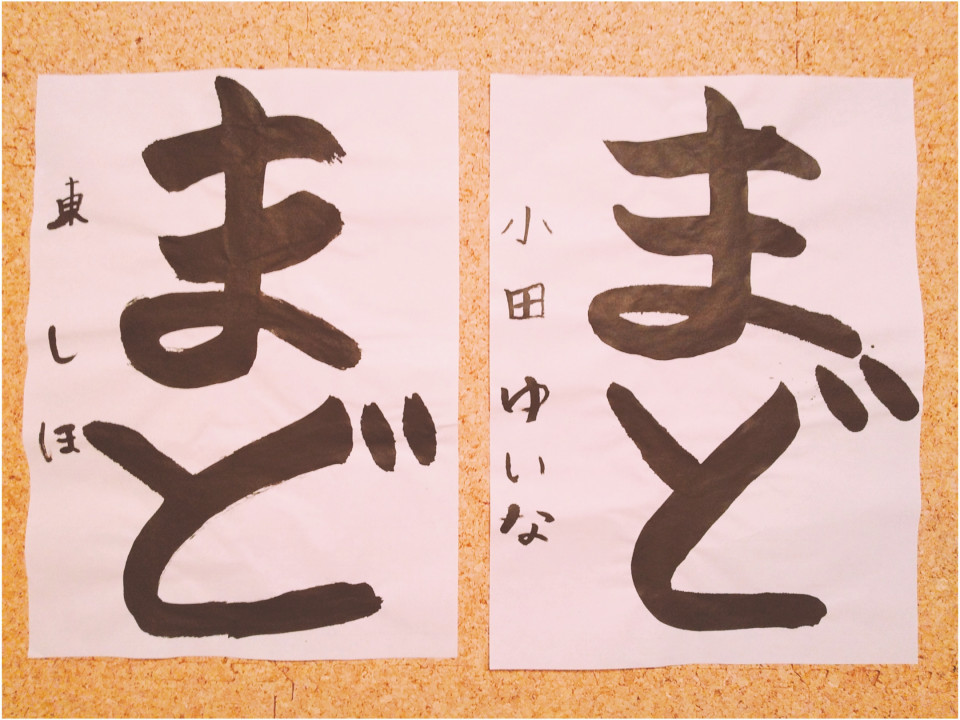 まど
小田ゆいな
まど
東しほ